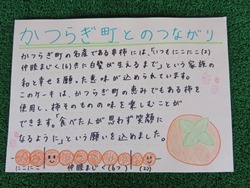 かつらぎ町とのつながり
かつらぎ町の名産である串柿には、「いつもにこにこ(2)
仲睦まじく(6)共に白髪が生えるまで」という家族の
和と幸せを願った意味が込められています。
このケーキは、かつらぎ町の恵みでもある柿を
使用し、柿そのものの味を楽しむことが
できます。「食べた人が思わず笑顔に
なるように」という願いを込めました。
にこにこ
仲睦まじく(6つ)
(2つ)